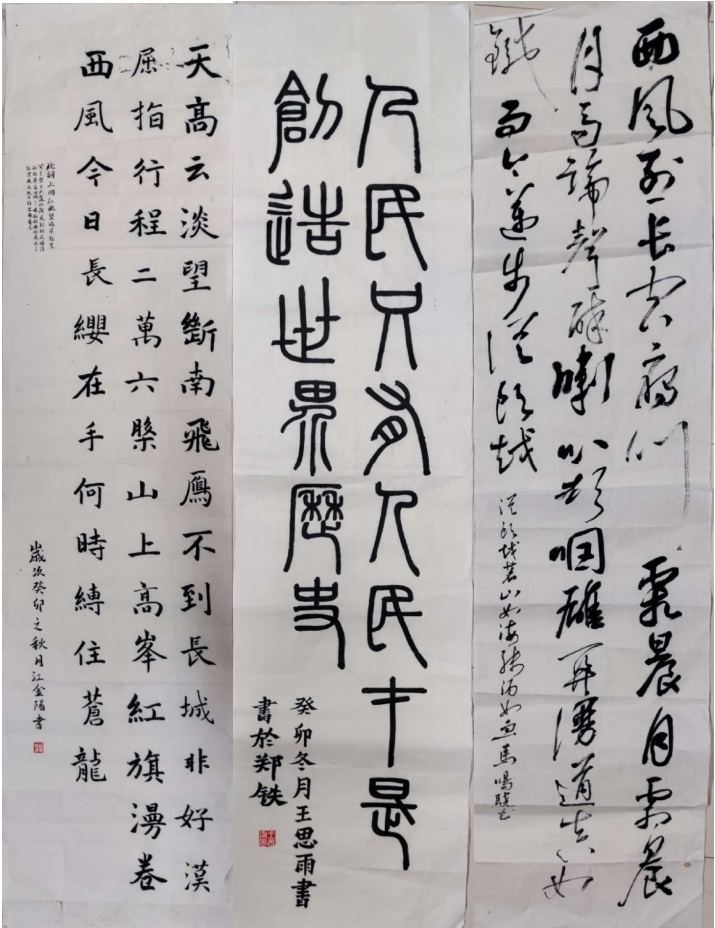 西风烈长空雁叫 霜晨月霜晨
月马蹄声碎喇叭声咽雄关漫道真如
鐵而今迈步從頭越
從頭越苍山如海残阳如血馬鳴
人民只有人民才是
創造世界歷史
癸卯冬月王思雨書
書於郑铁
天高云淡望斷南飛鴈不到長城非好漢
屈指行程二萬六槃山上高峯紅旗漫卷
西風今日長纓在手何時縛住蒼龍
歲次癸卯之秋月江金陽書